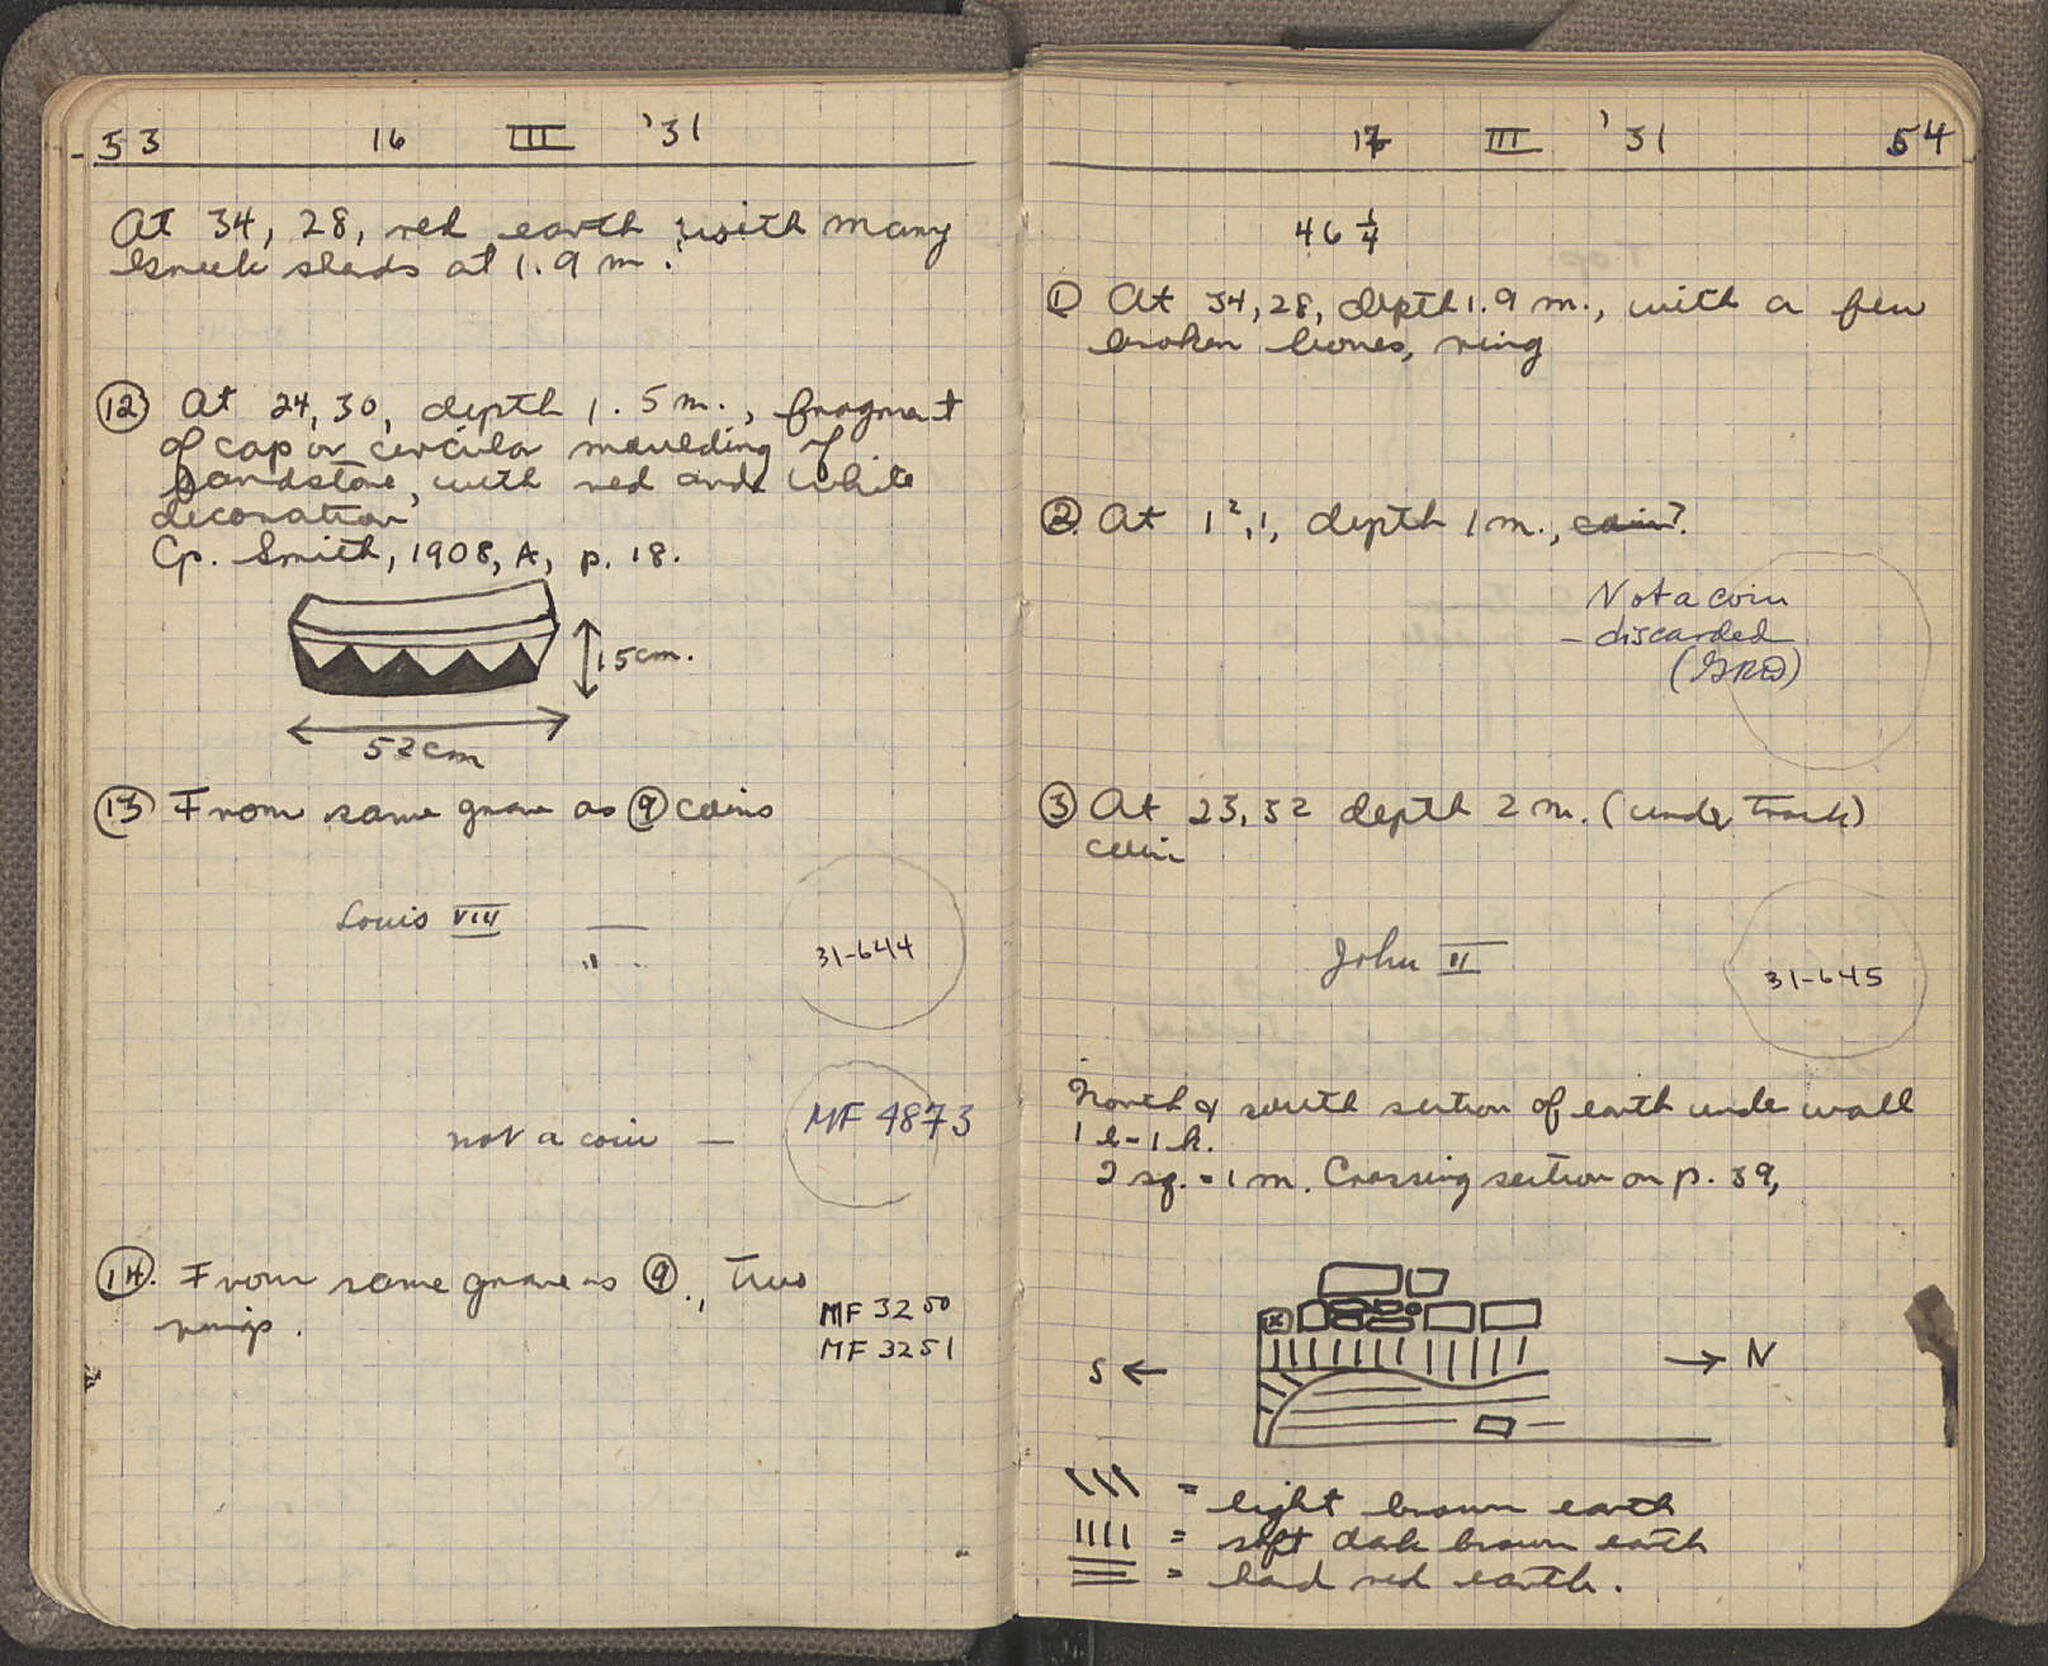 53 16 III '31
At 34, 28, red earth with many
Greek sherds at 1.9 m.
⑫ At 24, 30, depth 1.5 m., fragment
of cap or circular moulding of
sandstone, with red and white
decoration
Cp. Smith, 1908, A, p. 18.
15cm.
52cm
⑬ From same grave as ⑨ coins
Louis VIII —
" 
31-644
not a coin —
MF 4873
⑭. From same grave as ⑨., two
rings.
MF 3250
MF 3251
17 III '31 54
46 1/4
① At 34, 28, depth 1.9 m., with a few
broken bones, ring
②. At 1²,1, depth 1 m., coin?
Not a coin
- discarded
(GRD)
③ At 23, 32 depth 2 m. (under track)
coin
John II
31-645
North & south section of earth under wall
1 l - 1 k.
2 sq. = 1 m. Crossing section on p. 39,
S ← → N
\\\\ = light brown earth
|||| = soft dark brown earth
= hard red earth.